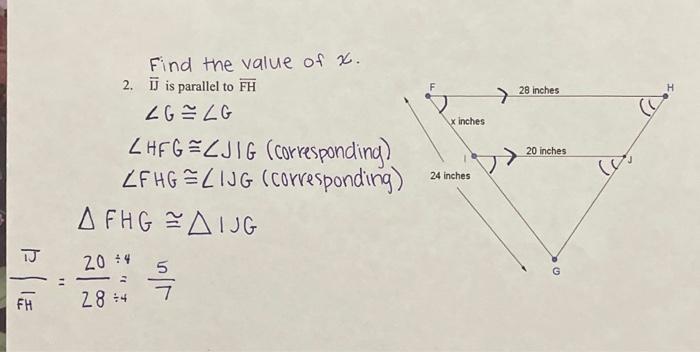 Find the value of x.
2. IJ is parallel to FH
∠G ≅ ∠G
∠HFG ≅ ∠JIG (corresponding)
∠FHG ≅ ∠IJG (corresponding)
△ FHG ≅ △ IJG
IJ / FH = 20 ÷4 / 28 ÷4 = 5 / 7
F
28 inches
H
x inches
I
20 inches
J
24 inches
G